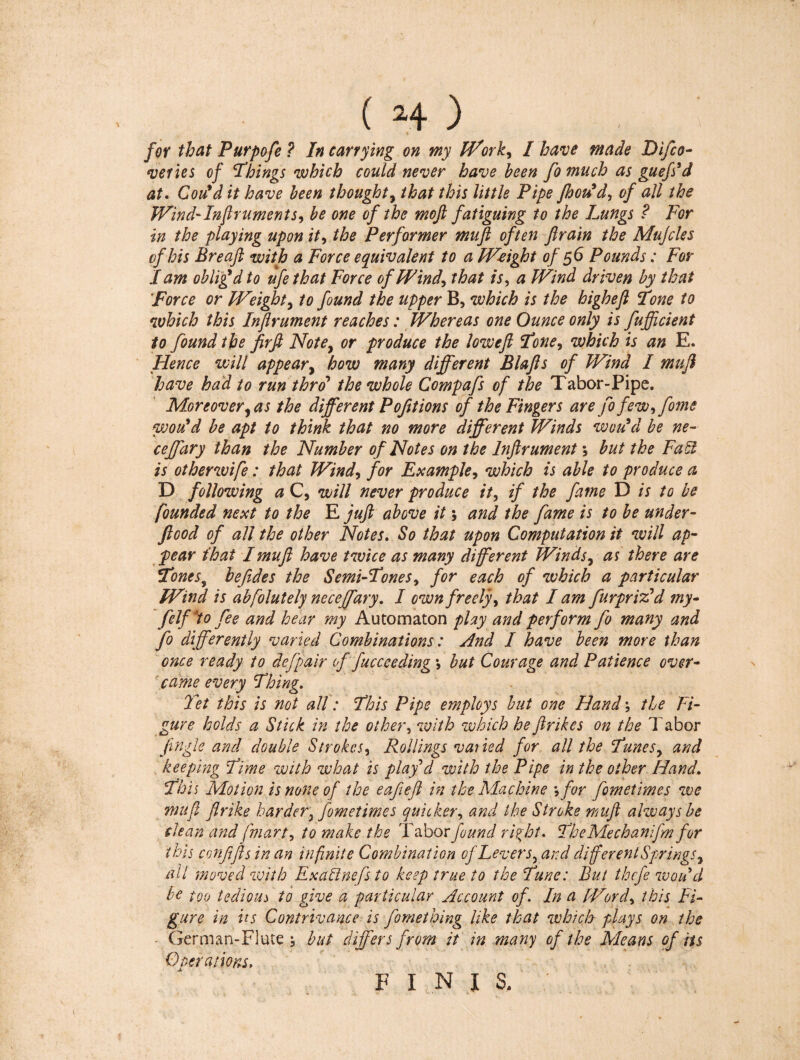 ( 24 )
for that Purpoſe ? In carrying on my Work, I have made Diſco-
veries of Things which could never have been ſo much as gueſs'd
at. Cou'd it have been thought, that this little Pipe ſhou'd, of all the
Wind-Inſtruments, be one of the moſt fatiguing to the Lungs ? For
in the playing upon it, the Performer muſt often ſtrain the Muſcles
of his Breaſt with a Force equivalent to a Weight of 56 Pounds : For
I am oblig'd to uſe that Force of Wind, that is, a Wind driven by that
Force or Weight, to ſound the upper B, which is the higheſt Tone to
which this Inſtrument reaches : Whereas one Ounce only is ſufficient
to ſound the firſt Note, or produce the loweſt Tone, which is an E.
Hence will appear, how many different Blaſts of Wind I muſt
have had to run thro' the whole Compaſs of the Tabor-Pipe.
Moreover, as the different Poſitions of the Fingers are ſo few, ſome
wou'd be apt to think that no more different Winds wou'd be ne-
ceſſary than the Number of Notes on the Inſtrument ; but the Fact
is otherwiſe : that Wind, for Example, which is able to produce a
D following a C, will never produce it, if the ſame D is to be
ſounded next to the E juſt above it ; and the ſame is to be under-
ſtood of all the other Notes. So that upon Computation it will ap-
pear that I muſt have twice as many different Winds, as there are
Tones, beſides the Semi-Tones, for each of which a particular
Wind is abſolutely neceſſary. I own freely, that I am ſurpriz'd my-
ſelf to ſee and hear my Automaton play and perform ſo many and
ſo differently varied Combinations : And I have been more than
once ready to deſpair of ſucceeding ; but Courage and Patience over-
came every Thing.
Yet this is not all : This Pipe employs but one Hand ; the Fi-
gure holds a Stick in the other, with which he ſtrikes on the Tabor
ſingle and double Strokes, Rollings varied for all the Tunes, and
keeping Time with what is play'd with the Pipe in the other Hand.
This Motion is none of the eaſieſt in the Machine ; for ſometimes we
muſt ſtrike harder, ſometimes quicker, and the Stroke muſt always be
clean and ſmart, to make the Tabor ſound right. The Mechaniſm for
this conſiſts in an infinite Combination of Levers, and different Springs,
all moved with Exactneſs to keep true to the Tune : But theſe wou'd
be too tedious to give a particular Account of. In a Word, this Fi-
gure in its Contrivance is ſomething like that which plays on the
German-Flute ; but differs from it in many of the Means of its
Operations.
FINIS.